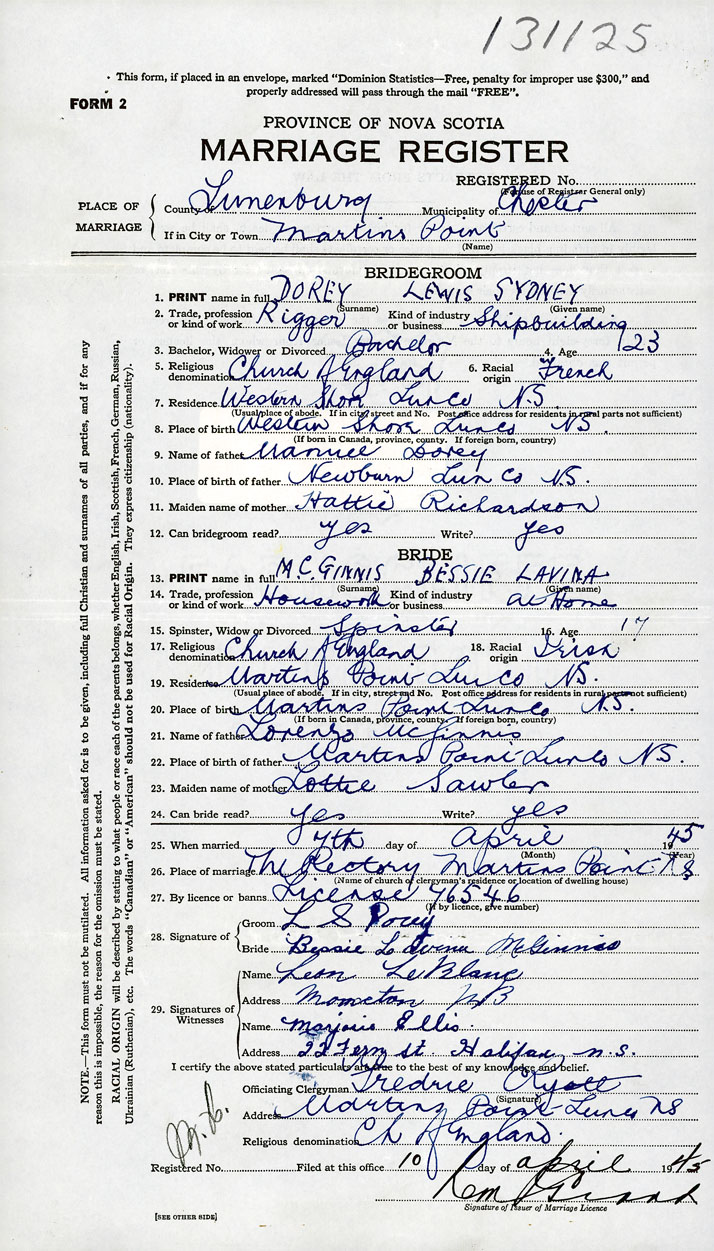 131125
· This form, if placed in an envelope, marked "Dominion Statistics—Free, penalty for improper use $300," and
properly addressed will pass through the mail "FREE".
FORM 2
PROVINCE OF NOVA SCOTIA
MARRIAGE REGISTER
REGISTERED No.
(For use of Registrar General only)
PLACE OF MARRIAGE
County of Lunenburg Municipality of Chester
If in City or Town Martins Point
(Name)
BRIDEGROOM
1. PRINT name in full DOREY LEWIS SYDNEY
(Surname) (Given name)
2. Trade, profession or kind of work Rigger Kind of industry or business Shipbuilding
3. Bachelor, Widower or Divorced Bachelor 4. Age 23
5. Religious denomination Church of England 6. Racial origin French
7. Residence Western Shore Lun Co N.S.
(Usual place of abode. If in city, street and No. Post office address for residents in rural parts not sufficient)
8. Place of birth Western Shore Lun Co N.S.
(If born in Canada, province, county. If foreign born, country)
9. Name of father Manuel Dorey
10. Place of birth of father Newburn Lun Co N.S.
11. Maiden name of mother Hattie Richardson
12. Can bridegroom read? yes Write? yes
BRIDE
13. PRINT name in full M.C.GINNIS BESSIE LAVINA
(Surname) (Given name)
14. Trade, profession or kind of work Housework Kind of industry or business at Home
15. Spinster, Widow or Divorced Spinster 16. Age 17
17. Religious denomination Church of England 18. Racial origin Irish
19. Residence Martins Point Lun Co N.S.
(Usual place of abode. If in city, street and No. Post office address for residents in rural parts not sufficient)
20. Place of birth Martins Point Lun Co N.S.
(If born in Canada, province, county. If foreign born, country)
21. Name of father Lorenzo McGinnis
22. Place of birth of father Martins Point Lun Co N.S.
23. Maiden name of mother Lottie Sawler
24. Can bride read? yes Write? yes
25. When married 7th day of April 1945
(Month) (Year)
26. Place of marriage The Rectory Martins Point N.S
(Name of church or clergyman's residence or location of dwelling house)
27. By licence or banns License 76546
(If by licence, give number)
28. Signature of
Groom L S Dorey
Bride Bessie Lavina McGinnis
29. Signatures of Witnesses
Name Leon LeBlanc
Address Moncton N B
Name Marjorie Ellis.
Address 22 Fern St Halifax, n.s.
I certify the above stated particulars are true to the best of my knowledge and belief.
Officiating Clergyman Fredric
(Signature)
Address Martins Point Lun Co NS
Religious denomination Ch of England.
Registered No. Filed at this office 10 day of April 1945
Signature of Issuer of Marriage Licence
[SEE OTHER SIDE]
NOTE.—This form must not be mutilated. All information asked for is to be given, including full Christian and surnames of all parties, and if for any
reason this is impossible, the reason for the omission must be stated.
RACIAL ORIGIN will be described by stating to what people or race each of the parents belongs, whether English, Irish, Scottish, French, German, Russian,
Ukrainian (Ruthenian), etc. The words "Canadian" or "American" should not be used for Racial Origin. They express citizenship (nationality).